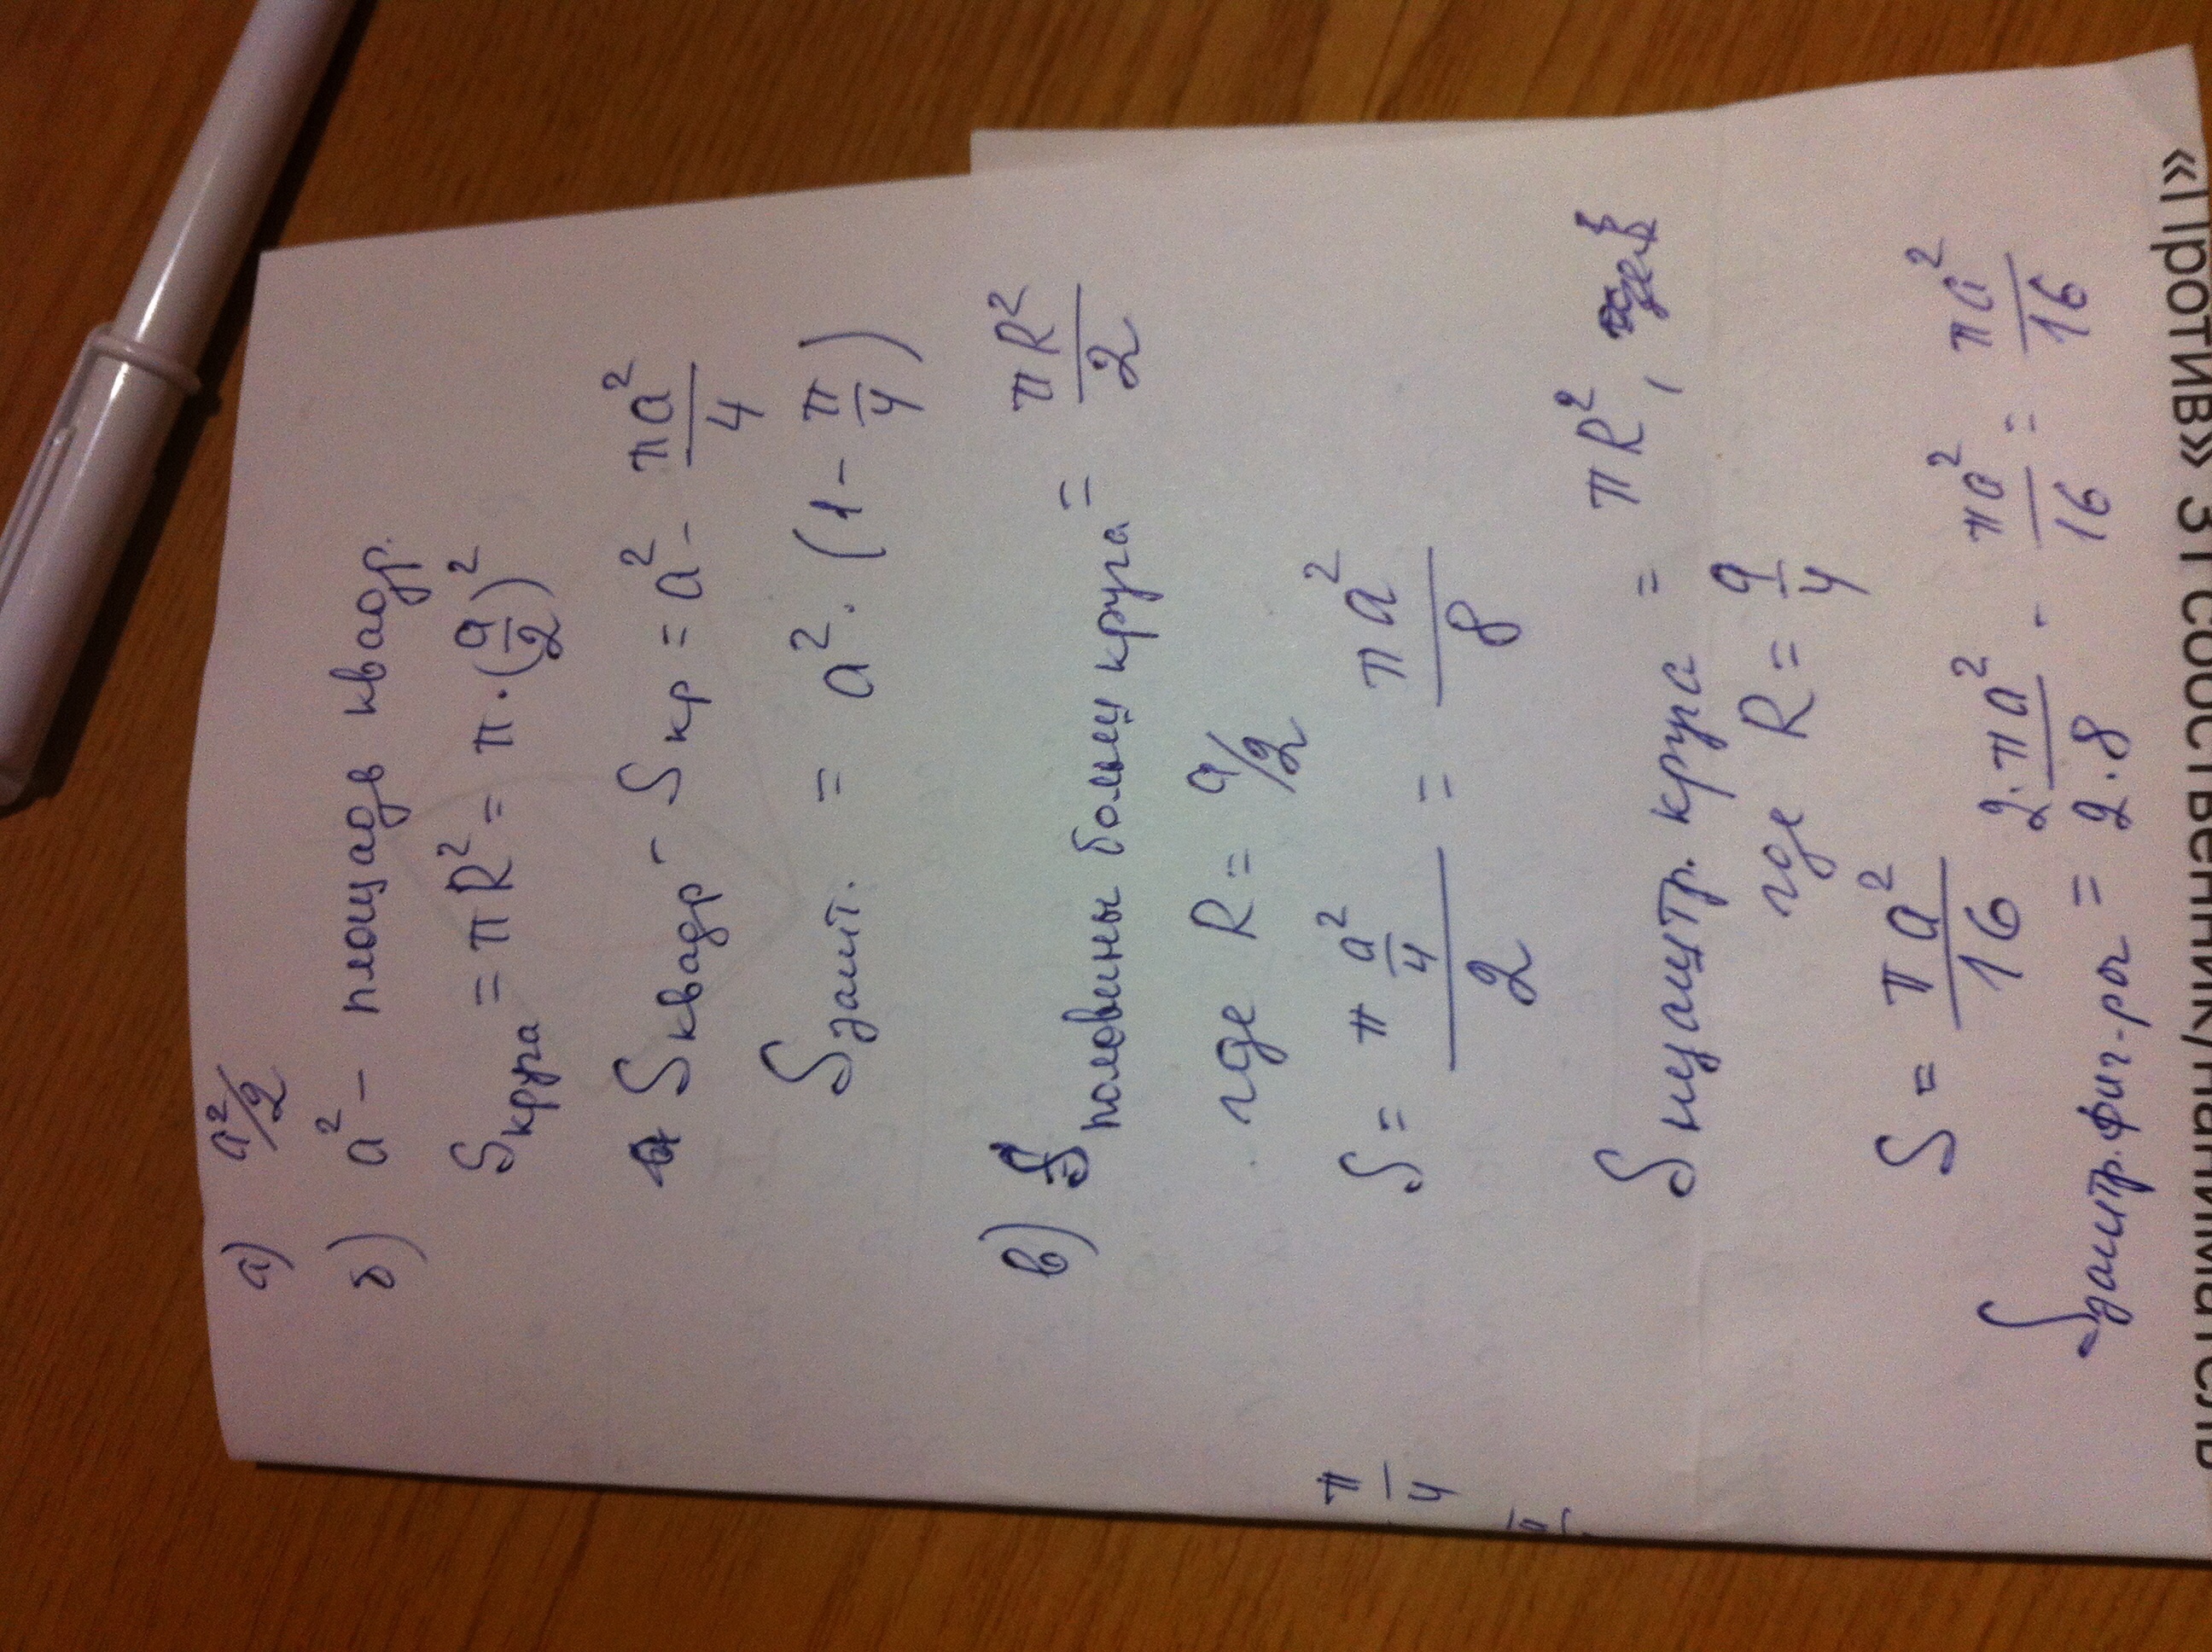 а) a²/2
б) a² – площадь квадр.
Sкруга = πR² = π·(a/2)²
Sквадр – Sкр = a² – πa²/4
Sзашт. = a²·(1 – π/4)
в) Sполовины больш круга = πR²/2
где R = a/2
S = (π a²/4)/2 = πa²/8
π/4
S нузаштр. круга = πR²,
где R = a/4
S = πa²/16
Sзаштр. фиг-ры = 2·πa²/2·8 – πa²/16 = πa²/16
«Против» эт собственник/наниматель